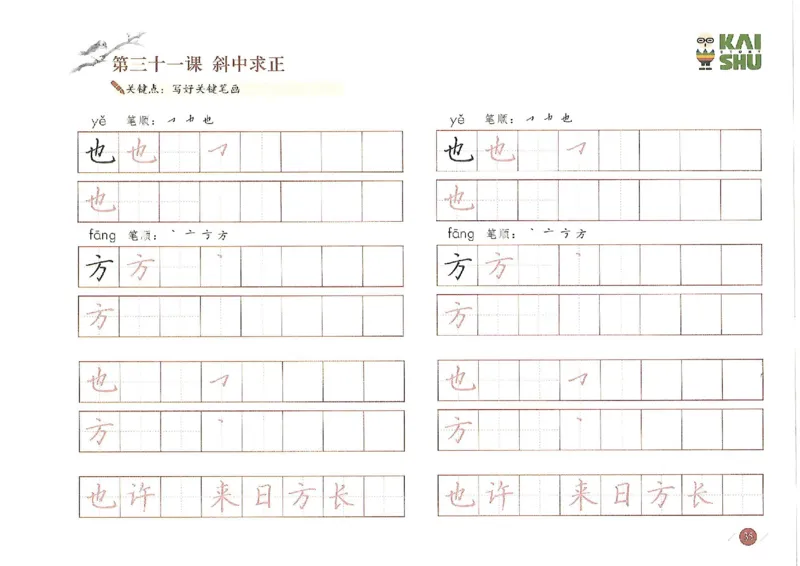 第三十一课 斜中求正
KAI
STORY
SHU
关键点：写好关键笔画
yě 笔顺：㇆ 也
也 也 ㇆
也
fāng 笔顺：丶 亠 方
方 方 丶
方
也 ㇆
方 丶
也 许 来 日 方 长
yě 笔顺：㇆ 也
也 也 ㇆
也
fāng 笔顺：丶 亠 方
方 方 丶
方
也 ㇆
方 丶
也 许 来 日 方 长